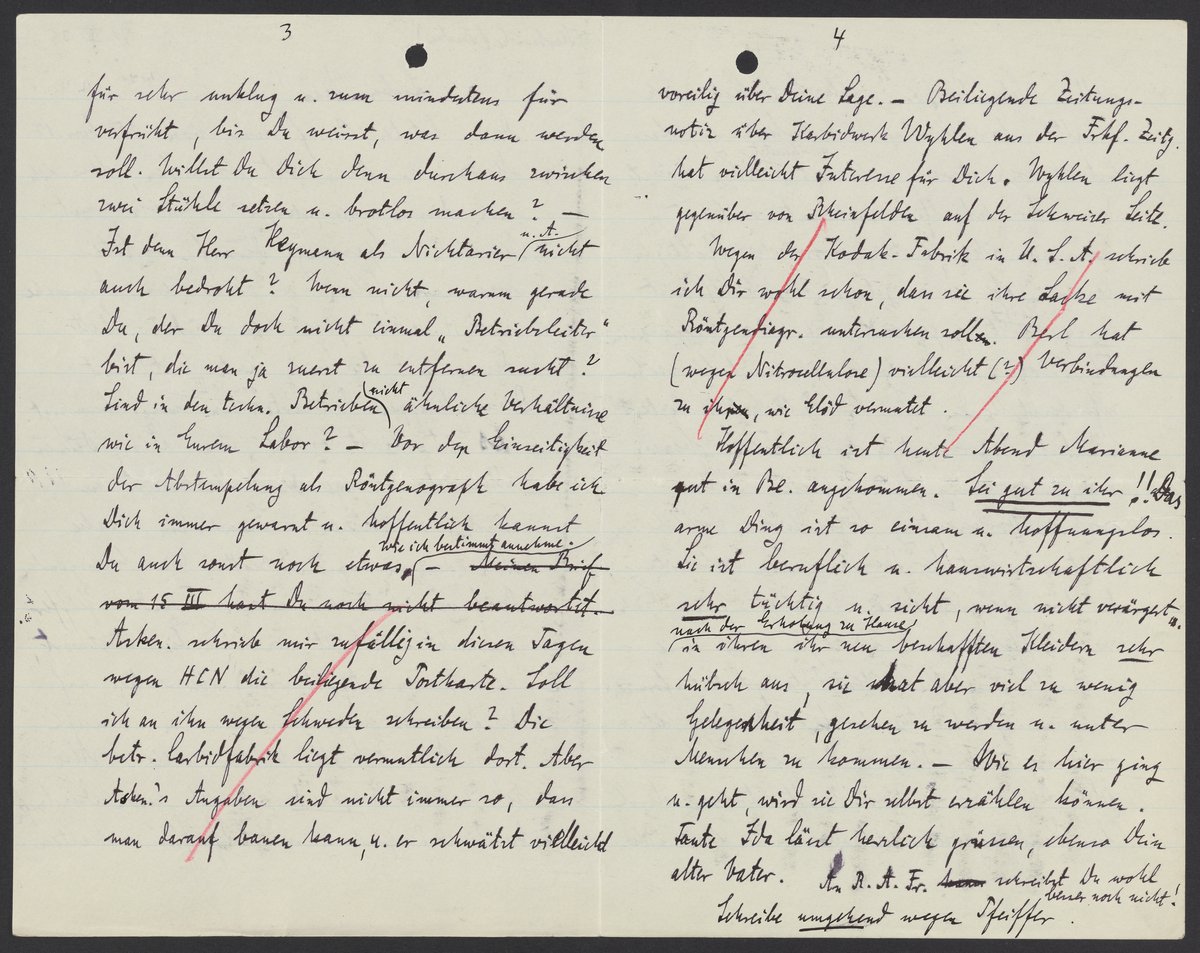 3
für sehr unklug u. zum mindestens für
verfrüht, bis Du weisst, was dann werden
soll. Willst Du Dich denn durchaus zwischen
zwei Stühle setzen u. brotlos machen? —
Ist denn Herr Heymann als Nichtarier u. A. nicht
auch bedroht? Wenn nicht, warum gerade
Du, der Du doch nicht einmal „Betriebsleiter"
bist, die man ja zuerst zu entfernen sucht?
Sind in den techn. Betrieben nicht ähnliche Verhältnisse
wie in Eurem Labor? — Vor der Einseitigkeit
der Abstempelung als Röntgenograph habe ich
Dich immer gewarnt u. hoffentlich kannst
Du auch sonst noch etwas, wie ich bestimmt annehme. — Meinen Brief
vom 15 III hast Du noch nicht beantwortet.
Asken. schrieb mir zufällig in diesen Tagen
wegen HCN die beiliegende Postkarte. Soll
ich an ihn wegen Schweden schreiben? Die
betr. Carbidfabrik liegt vermutlich dort. Aber
Asken.'s Angaben sind nicht immer so, dass
man darauf bauen kann, u. er schwätzt vielleicht
4
voreilig über Deine Lage. — Beiliegende Zeitungs-
notiz über Karbidwerk Wyhlen aus der Frkf. Zeitg.
hat vielleicht Interesse für Dich. Wyhlen liegt
gegenüber von Rheinfelden auf der Schweizer Seite.
Wegen der Kodak-Fabrik in U. S. A. schrieb
ich Dir wohl schon, dass sie ihre Lacke mit
Röntgendiagr. untersuchen sollen. Berl hat
(wegen Nitrocellulose) vielleicht (?) Verbindungen
zu ihnen, wie Glöd vermutet.
Hoffentlich ist heute Abend Marianne
gut in Be. angekommen. Sei gut zu ihr!! Das
arme Ding ist so einsam u. hoffnungslos.
Sie ist beruflich u. hauswirtschaftlich
sehr tüchtig u. sieht, wenn nicht verärgert u.
nach der Erholung zu Hause
in ihren ihr neu beschafften Kleidern sehr
hübsch aus, sie hat aber viel zu wenig
Gelegenheit, gesehen zu werden u. unter
Menschen zu kommen. — Wie es hier ging
u. geht, wird sie Dir selbst erzählen können.
Tante Ida lässt herzlich grüssen, ebenso Dein
alter Vater. An R. A. Fr. schreibst Du wohl
besser noch nicht!
Schreibe umgehend wegen Pfeiffer.